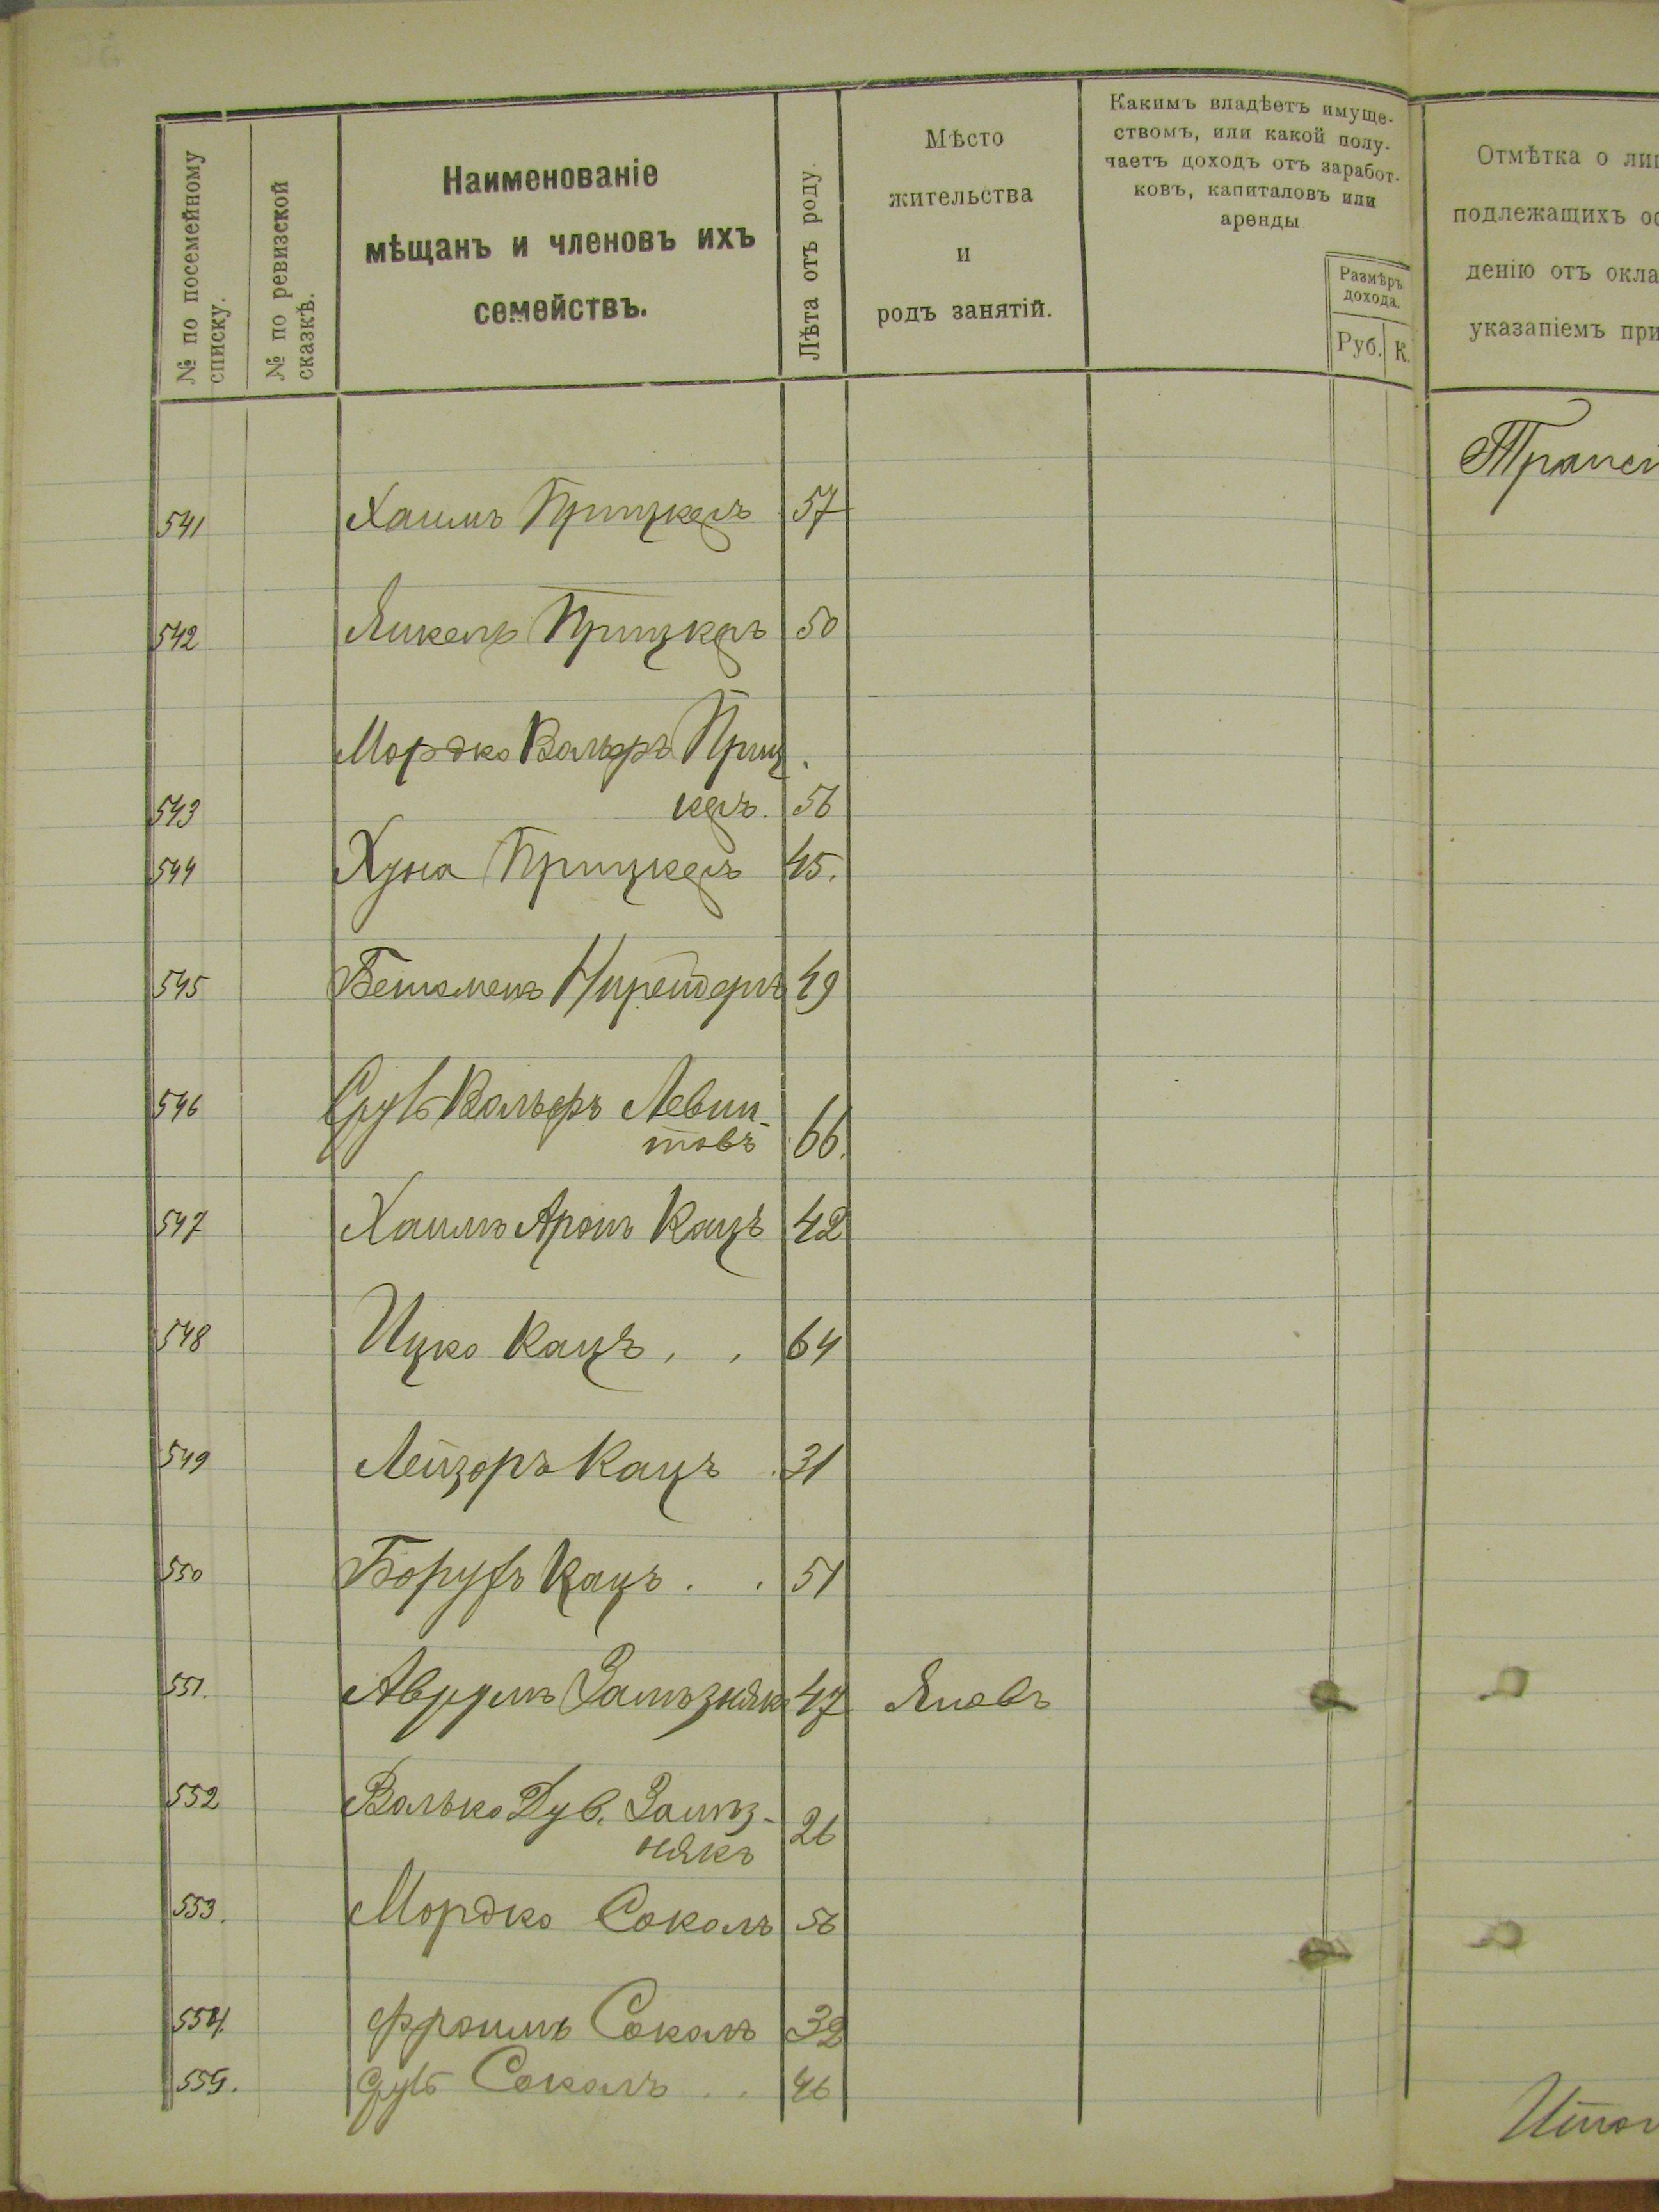 № по посемейному списку.
№ по ревизской сказкѣ.
Наименованіе
мѣщанъ и членовъ ихъ
семействъ.
Лѣта отъ роду
Мѣсто
жительства
и
родъ занятій.
Какимъ владѣетъ имуще-
ствомъ, или какой полу-
чаетъ доходъ отъ заработ-
ковъ, капиталовъ или
аренды
Размѣръ
дохода.
Руб. К.
Отмѣтка о лиц
подлежащихъ ос
денію отъ окла
указаніемъ при
Трансп
541 Хаимъ Прицкеръ 57
542 Янкель Прицкеръ 50
Мордко ВольфъПриц
543 керъ. 56
544 Хуна Прицкеръ 45.
545 49
546 Сруль Вольфъ Левин-
товъ 66.
547 Хаимъ Аронъ Кацъ 42
548 Ицко Кацъ . . 64
549 Лейзоръ Кацъ . 31
550 Борухъ Кацъ . . 51
551. Аврумъ Зализнякъ 47 Яновъ
552 Волько Дув. Зализ-
някъ 26
553. Мордко Соколъ 56
554. Фроимъ Соколъ 32
555. Сруль Соколъ . . 46
Итог